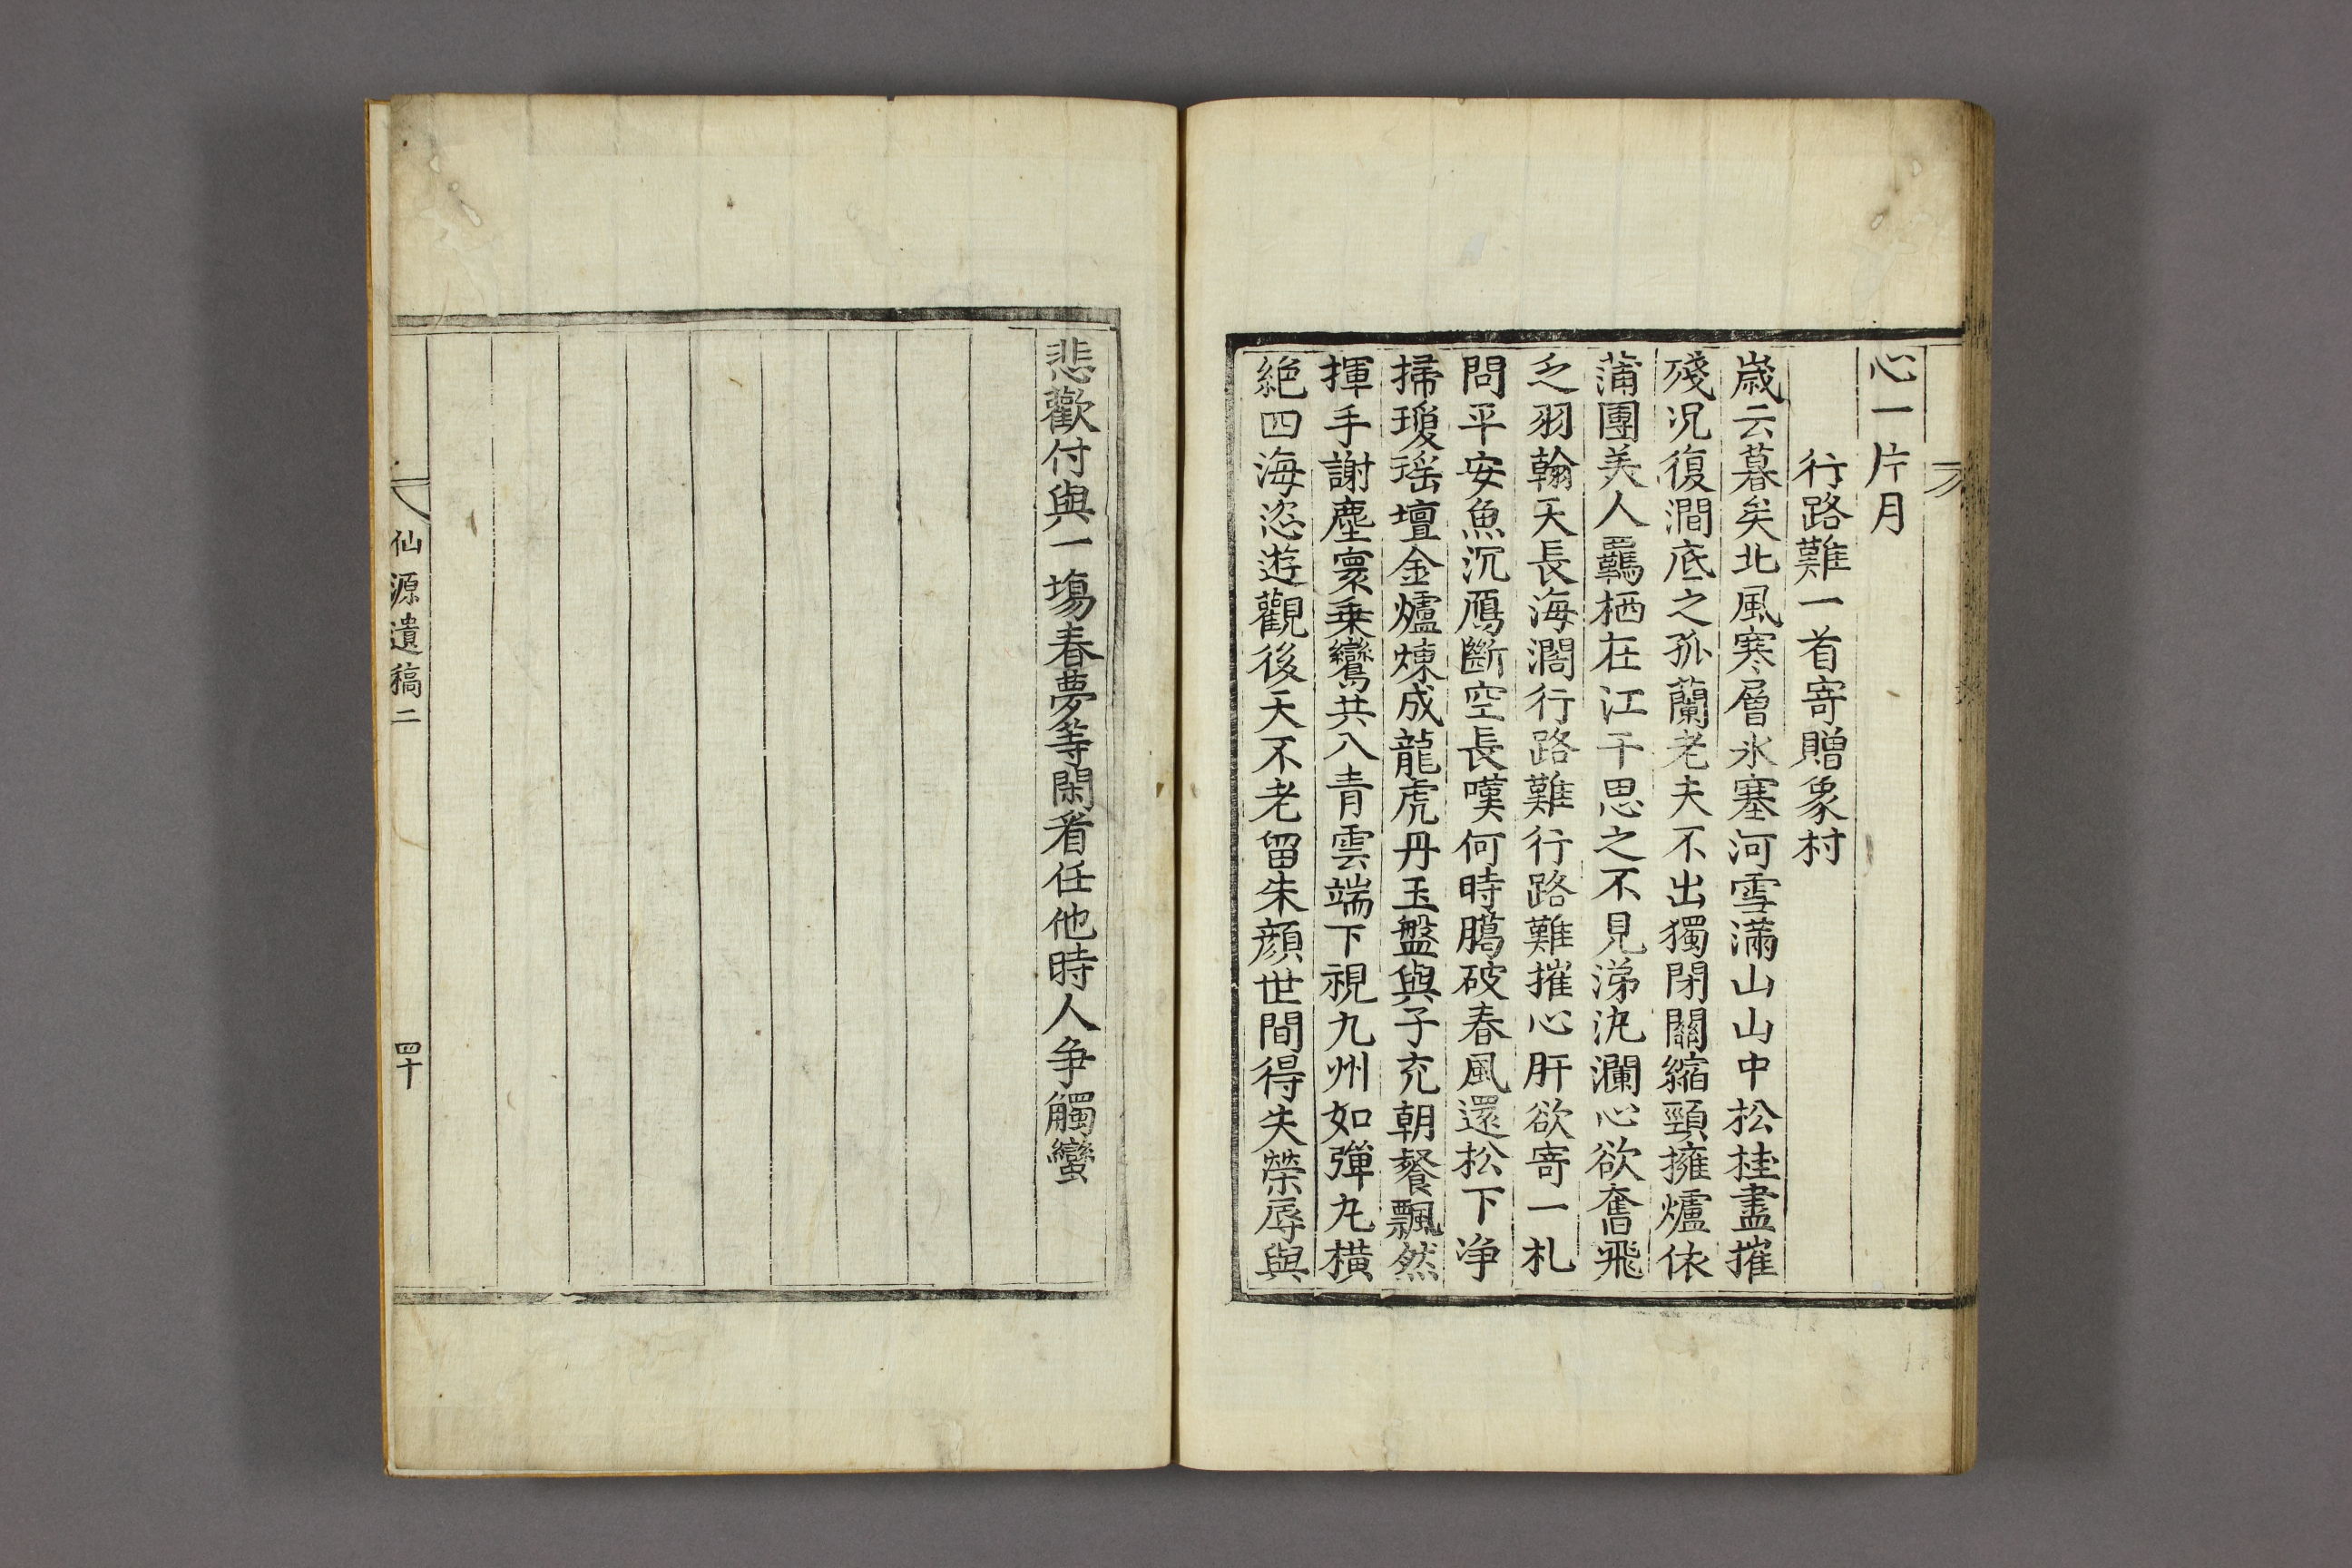 心一片月
行路難一首寄贈象村
歲云暮矣北風寒層氷塞河雪滿山山中松桂盡摧
殘况復澗底之孤蘭老夫不出獨閉關縮頸擁爐依
蒲團美人羈栖在江干思之不見涕汍瀾心欲奮飛
乏羽翰天長海濶行路難行路難摧心肝欲寄一札
問平安魚沉鴈斷空長嘆何時臈破春風還松下净
掃瓊瑤壇金爐煉成龍虎丹玉盤與子充朝餐飄然
揮手謝塵寰乗鸞共八青雲端下視九州如彈丸橫
絶四海恣遊觀後天不老留朱顔世間得失榮辱與
悲歡付與一場春夢等閑看任他時人爭觸蠻
仙源遺稿二
四十